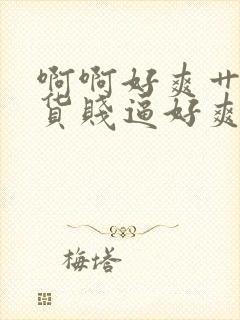 啊啊好爽艹
货贱逼好爽
梅塔